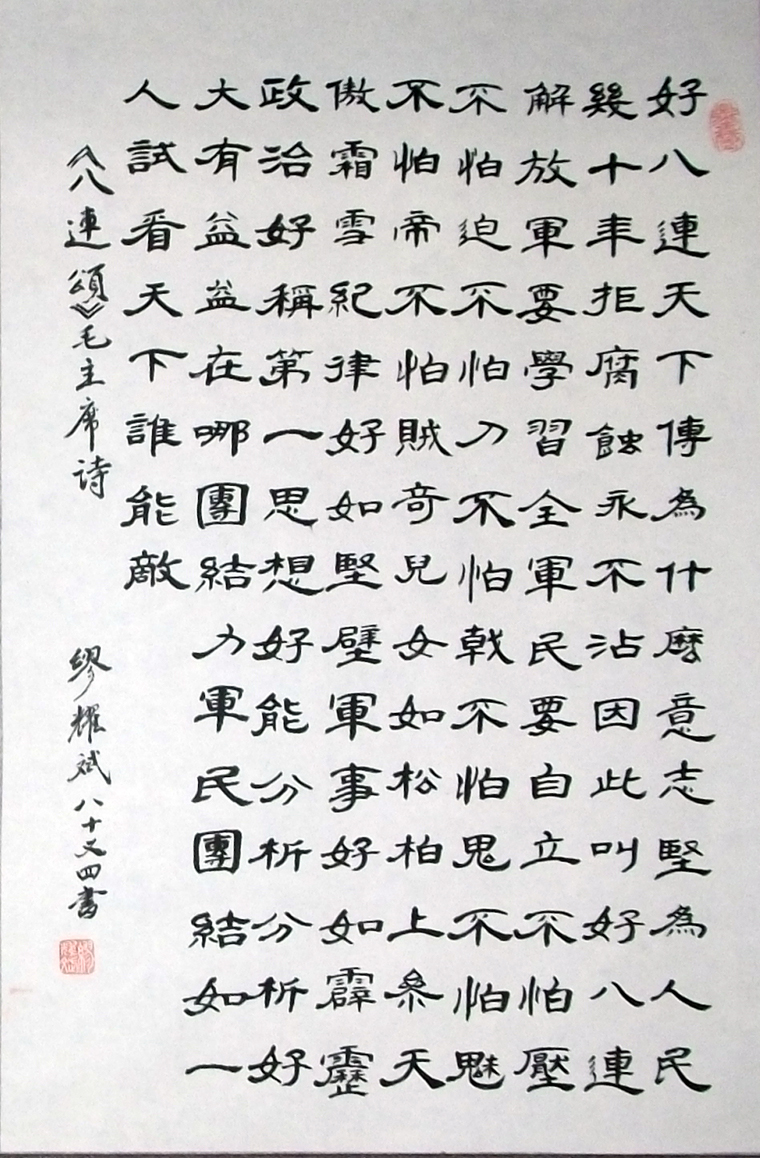 好八連天下傳為什麼意志堅為人民
幾十年拒腐蝕永不沾因此叫好八連
解放軍要學習全軍民要自立不怕壓
不怕迫不怕刀不怕戟不怕鬼不怕魅
不怕帝不怕賊奇兒女如松柏上參天
傲霜雪紀律好如堅壁軍事好如霹靂
政治好稱第一思想好能分析分析好
大有益益在哪團結力軍民團結如一
人試看天下誰能敵
《八連頌》毛主席詩 繆耀斌八十又四書